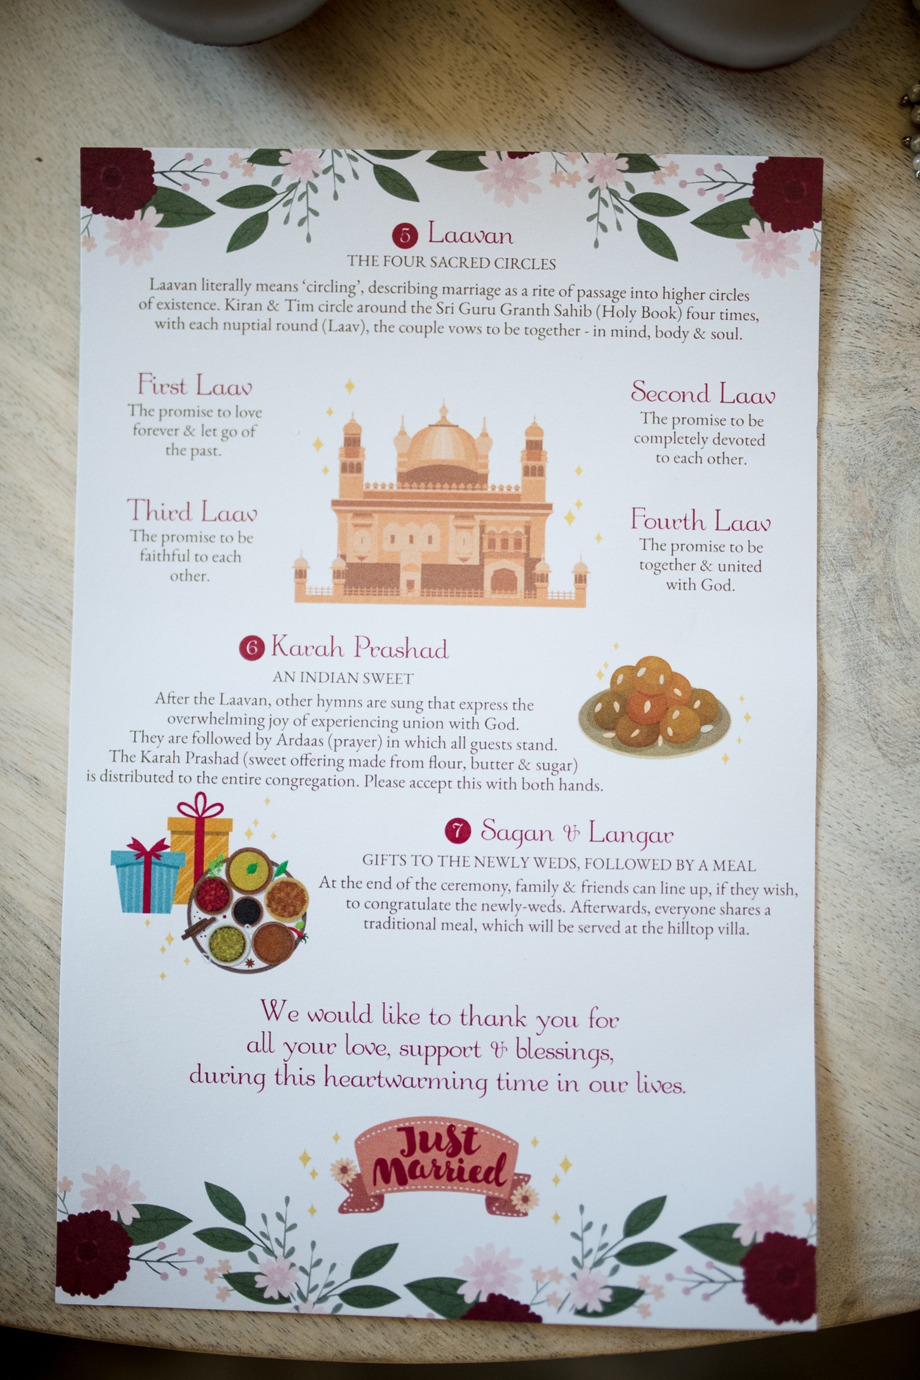 5 Laavan
THE FOUR SACRED CIRCLES
Laavan literally means ‘circling’, describing marriage as a rite of passage into higher circles
of existence. Kiran & Tim circle around the Sri Guru Granth Sahib (Holy Book) four times,
with each nuptial round (Laav), the couple vows to be together - in mind, body & soul.
First Laav
The promise to love
forever & let go of
the past.
Second Laav
The promise to be
completely devoted
to each other.
Third Laav
The promise to be
faithful to each
other.
Fourth Laav
The promise to be
together & united
with God.
6 Karah Prashad
AN INDIAN SWEET
After the Laavan, other hymns are sung that express the
overwhelming joy of experiencing union with God.
They are followed by Ardaas (prayer) in which all guests stand.
The Karah Prashad (sweet offering made from flour, butter & sugar)
is distributed to the entire congregation. Please accept this with both hands.
7 Sagan & Langar
GIFTS TO THE NEWLY WEDS, FOLLOWED BY A MEAL
At the end of the ceremony, family & friends can line up, if they wish,
to congratulate the newly-weds. Afterwards, everyone shares a
traditional meal, which will be served at the hilltop villa.
We would like to thank you for
all your love, support & blessings,
during this heartwarming time in our lives.
Just
Married